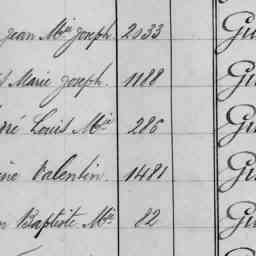 Jean Mie Joseph. 2033 Gu
Marie Joseph. 1188 Gu
Louis Mie 286 Gu
Valentin. 1481 Gu
Baptiste Mie 82 Gu